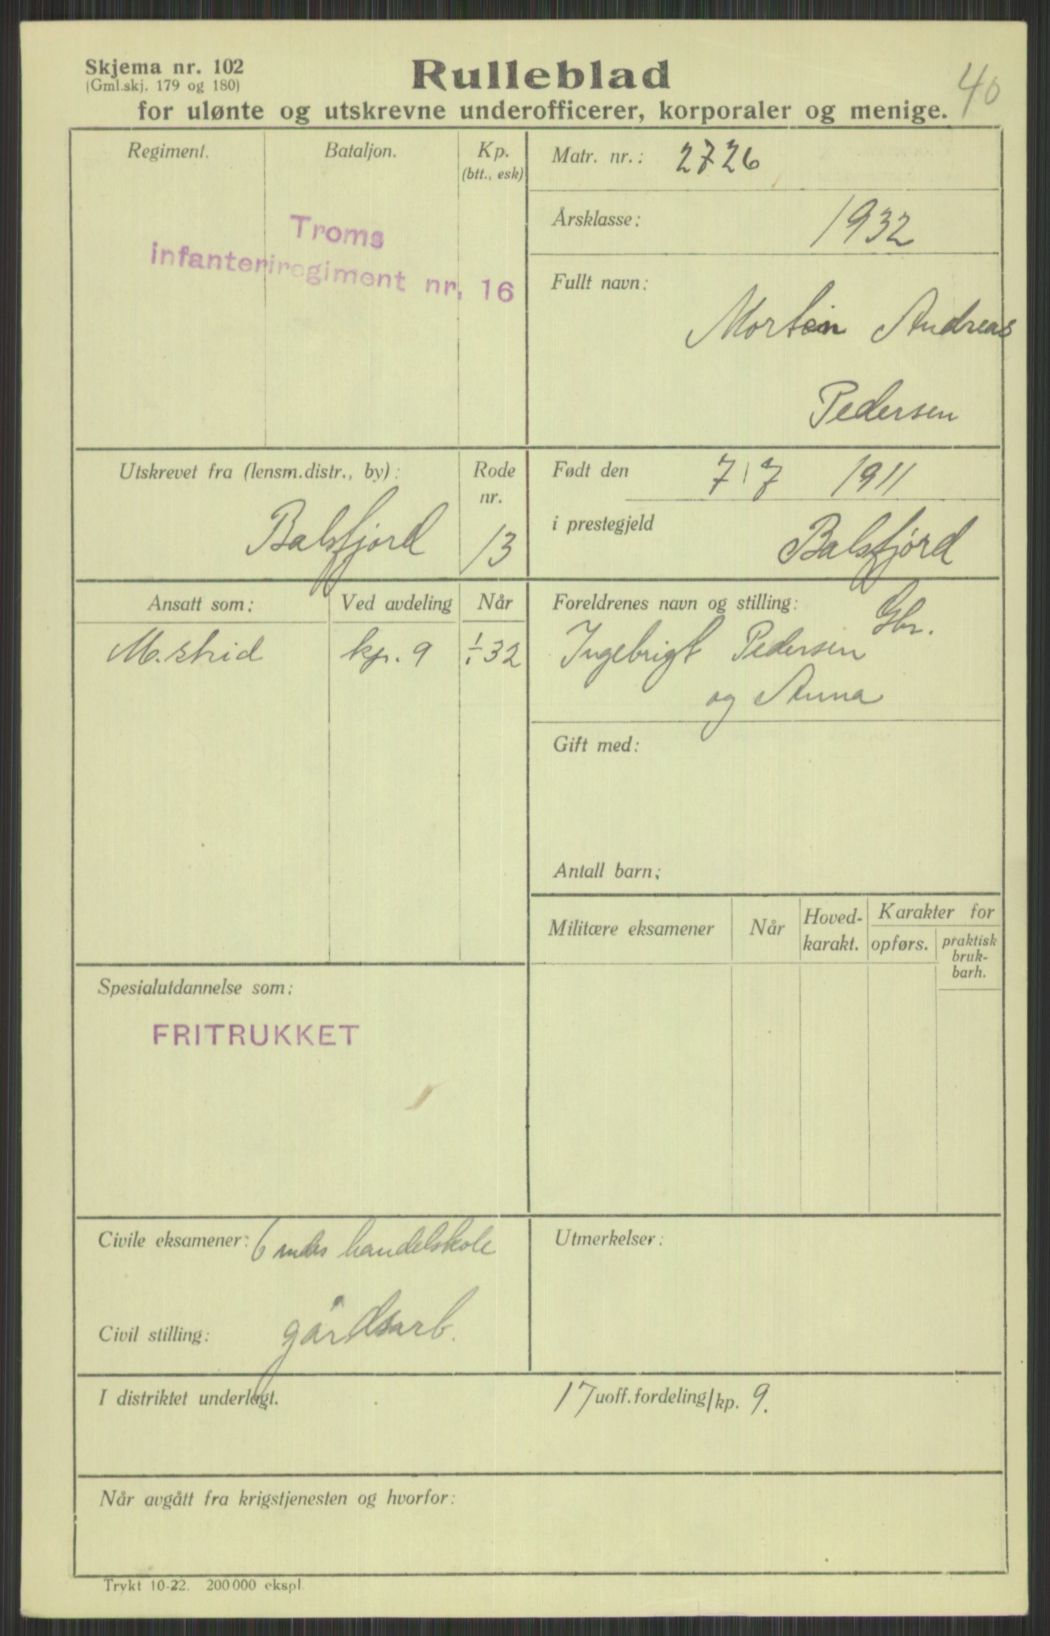 Skjema nr. 102
(Gml.skj. 179 og 180)
Rulleblad
40
for ulønte og utskrevne underofficerer, korporaler og menige.
Regiment.
Bataljon.
Kp.
(btt., esk)
Troms
infanteriregiment nr. 16
Matr. nr.: 2726
Årsklasse: 1932
Fullt navn:
Morten Andreas
Pedersen
Utskrevet fra (lensm.distr., by):
Balsfjord
Rode
nr.
13
Født den 7/7 1911
i prestegjeld Balsfjord
Ansatt som:
Ved avdeling
Når
kp. 9
1/1 32
Foreldrenes navn og stilling: Gbr.
Ingebrigt Pedersen
og Anna
Gift med:
Antall barn:
Militære eksamener
Når
Hoved-
karakt.
Karakter for
opførs.
praktisk
bruk-
barh.
Spesialutdannelse som:
FRITRUKKET
Civile eksamener: 6 mdrs handelskole
Civil stilling: gårdsarb.
Utmerkelser:
I distriktet underlagt.
17 uoff.fordeling/kp. 9.
Når avgått fra krigstjenesten og hvorfor:
Trykt 10-22. 200 000 ekspl.